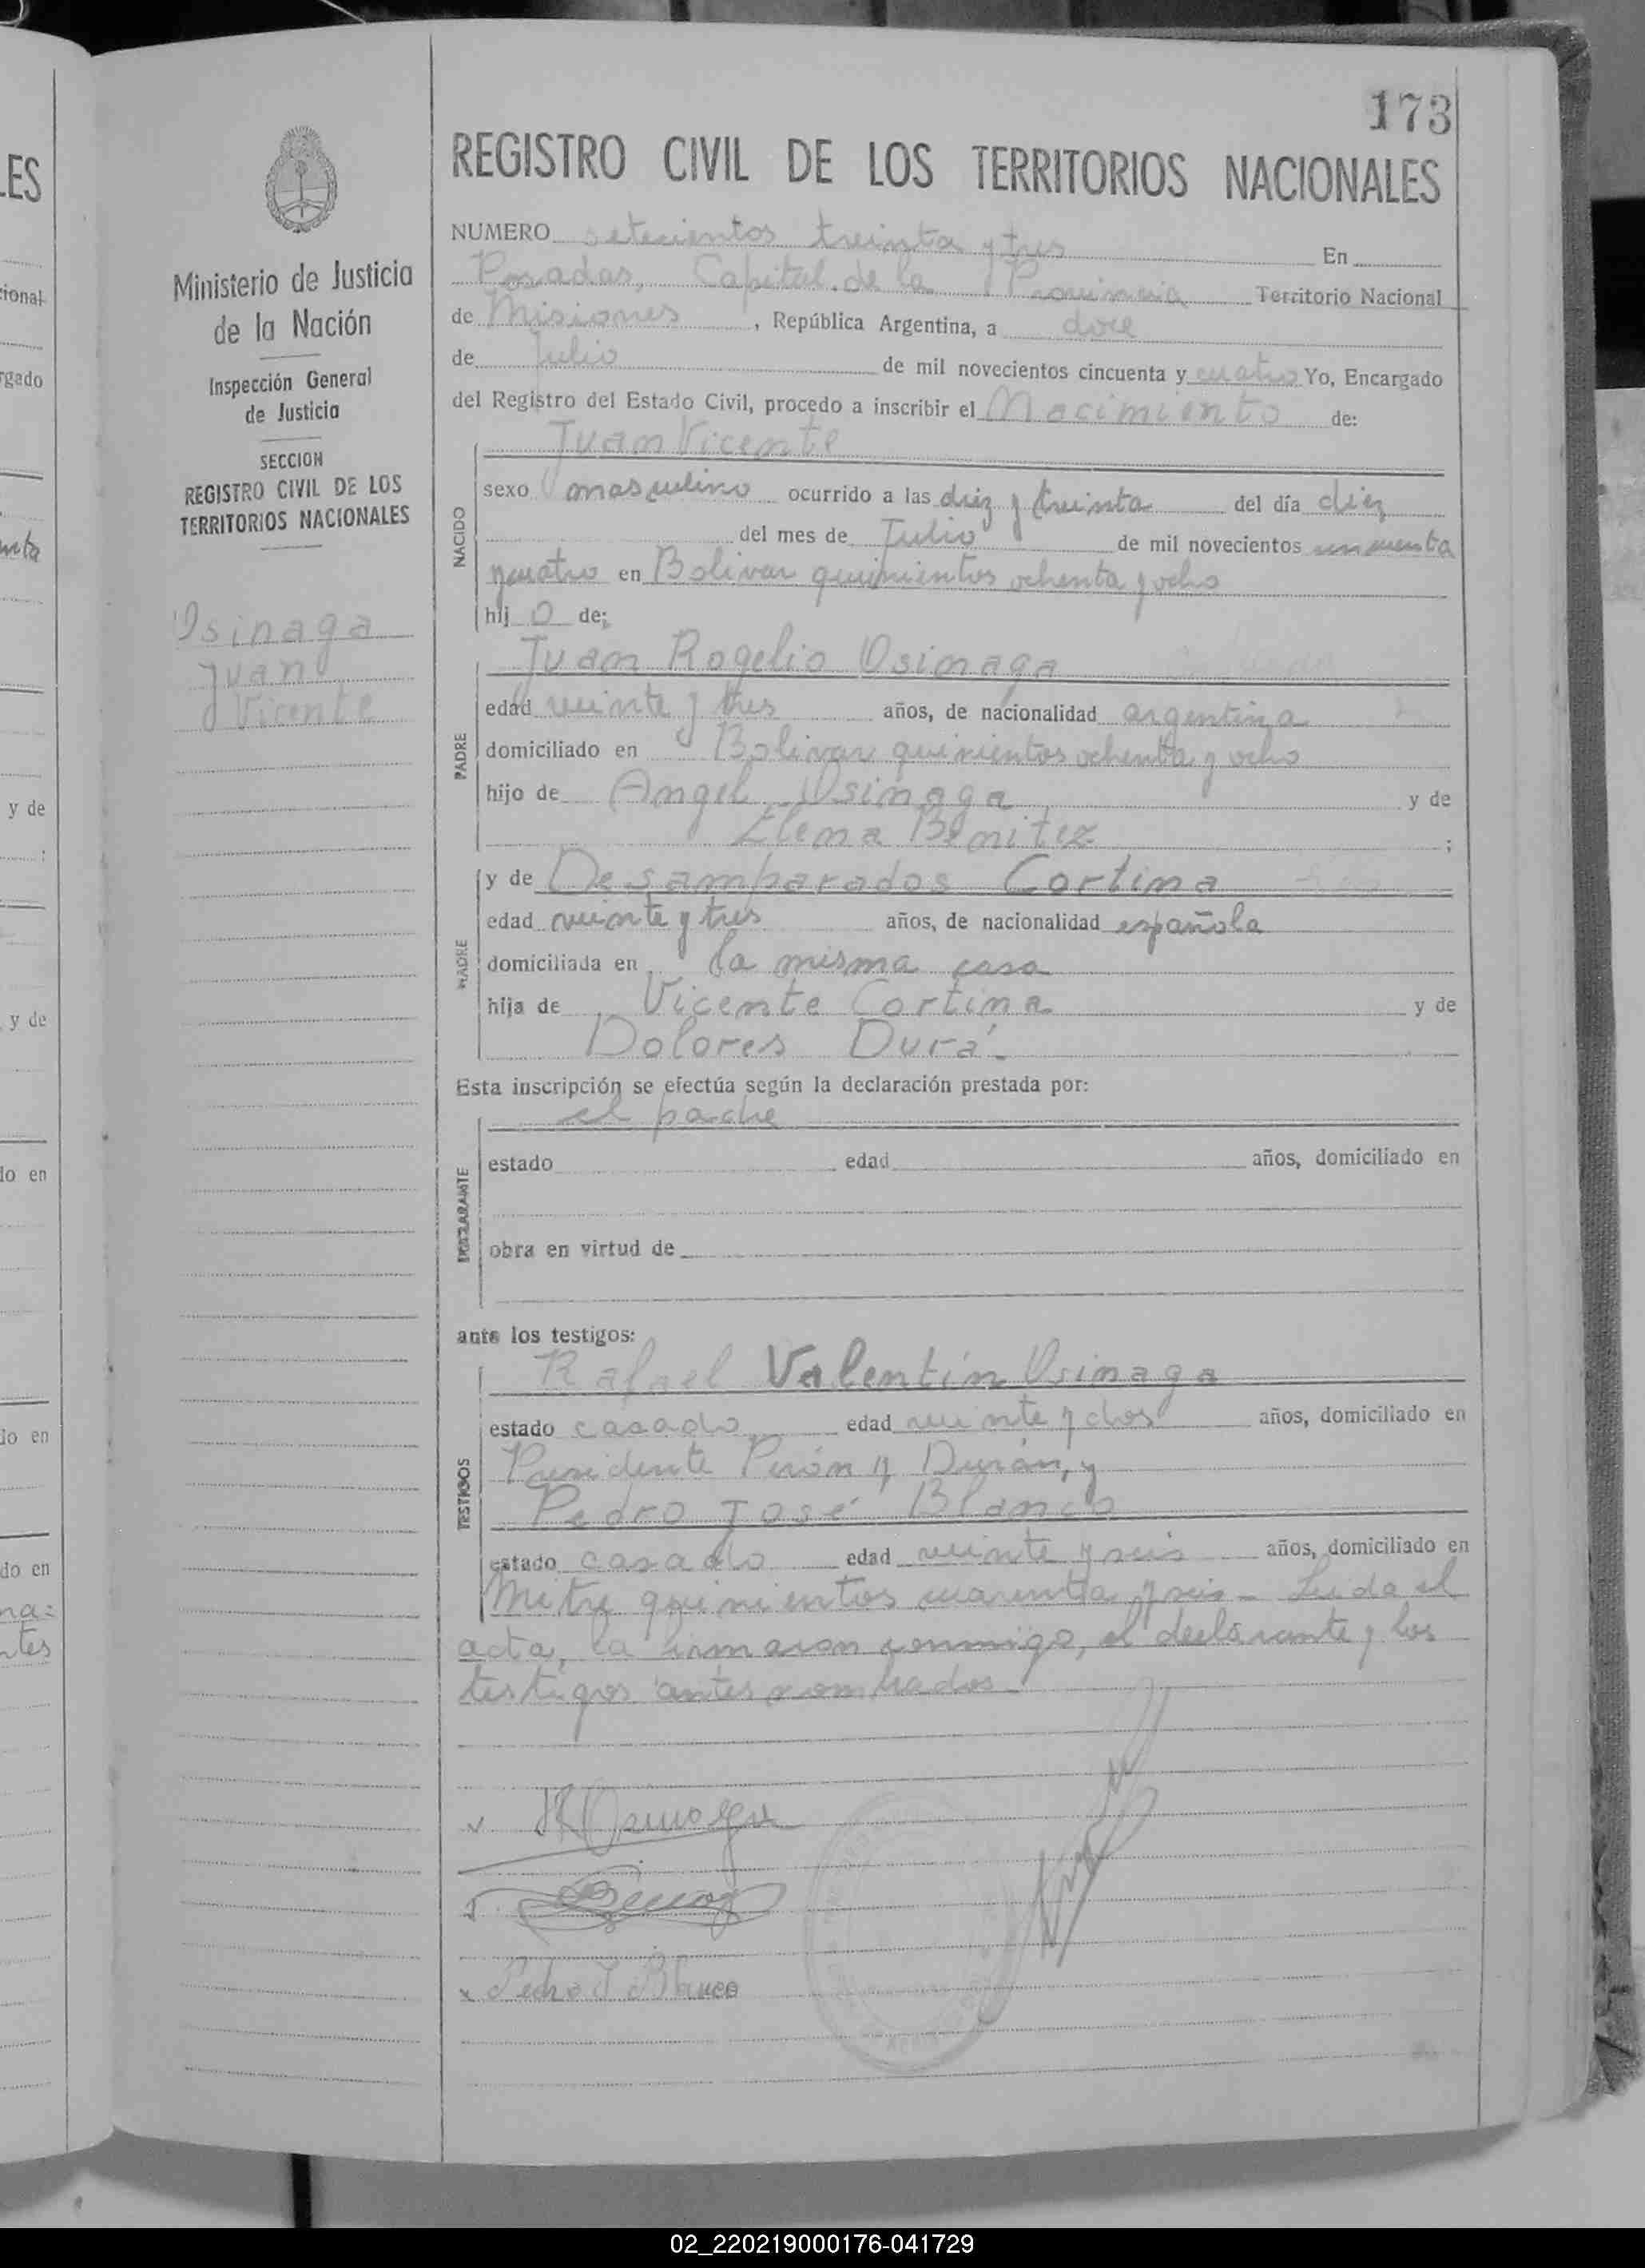 173
REGISTRO CIVIL DE LOS TERRITORIOS NACIONALES
Ministerio de Justicia
de la Nación
Inspección General
de Justicia
SECCION
REGISTRO CIVIL DE LOS
TERRITORIOS NACIONALES
Osinaga
Juan
Vicente
NUMERO setecientos treinta y tres En
Posadas, Capital de la Provincia Territorio Nacional
de Misiones, República Argentina, a doce
de Julio de mil novecientos cincuenta y cuatro Yo, Encargado
del Registro del Estado Civil, procedo a inscribir el Nacimiento de:
Juan Vicente
NACIDO
sexo masculino ocurrido a las diez y treinta del día diez
del mes de Julio de mil novecientos cincuenta
y cuatro en Bolivar quinientos ochenta y ocho
hij o de;
Juan Rogelio Osinaga
PADRE
edad veinte y tres años, de nacionalidad argentina
domiciliado en Bolivar quinientos ochenta y ocho
hijo de Angel Osinaga y de
Elena Benitez ;
y de Desamparados Cortina
MADRE
edad veinte y tres años, de nacionalidad española
domiciliada en la misma casa
hija de Vicente Cortina y de
Dolores Durá.
Esta inscripción se efectúa según la declaración prestada por:
el padre
DECLARANTE
estado edad años, domiciliado en
obra en virtud de
ante los testigos:
Rafael Valentín Osinaga
TESTIGOS
estado casado edad veinte y dos años, domiciliado en
Presidente Perón y Durán, y
Pedro José Blanco
estado casado edad veinte y seis años, domiciliado en
Mitre quinientos cuarenta y seis - Leida el
acta, la firmaron conmigo, el declarante y los
testigos antes nombrados.
Pedro J Blanco
ES
cional
rgado
y de
y de
do en
do en
do en
02_220219000176-041729